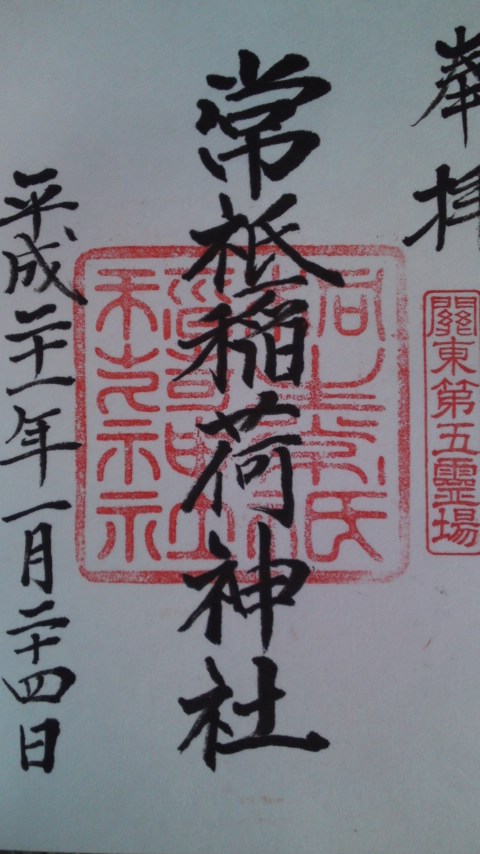 奉拝
關東第五靈場
常祗稲荷神社
平成二十一年一月二十四日